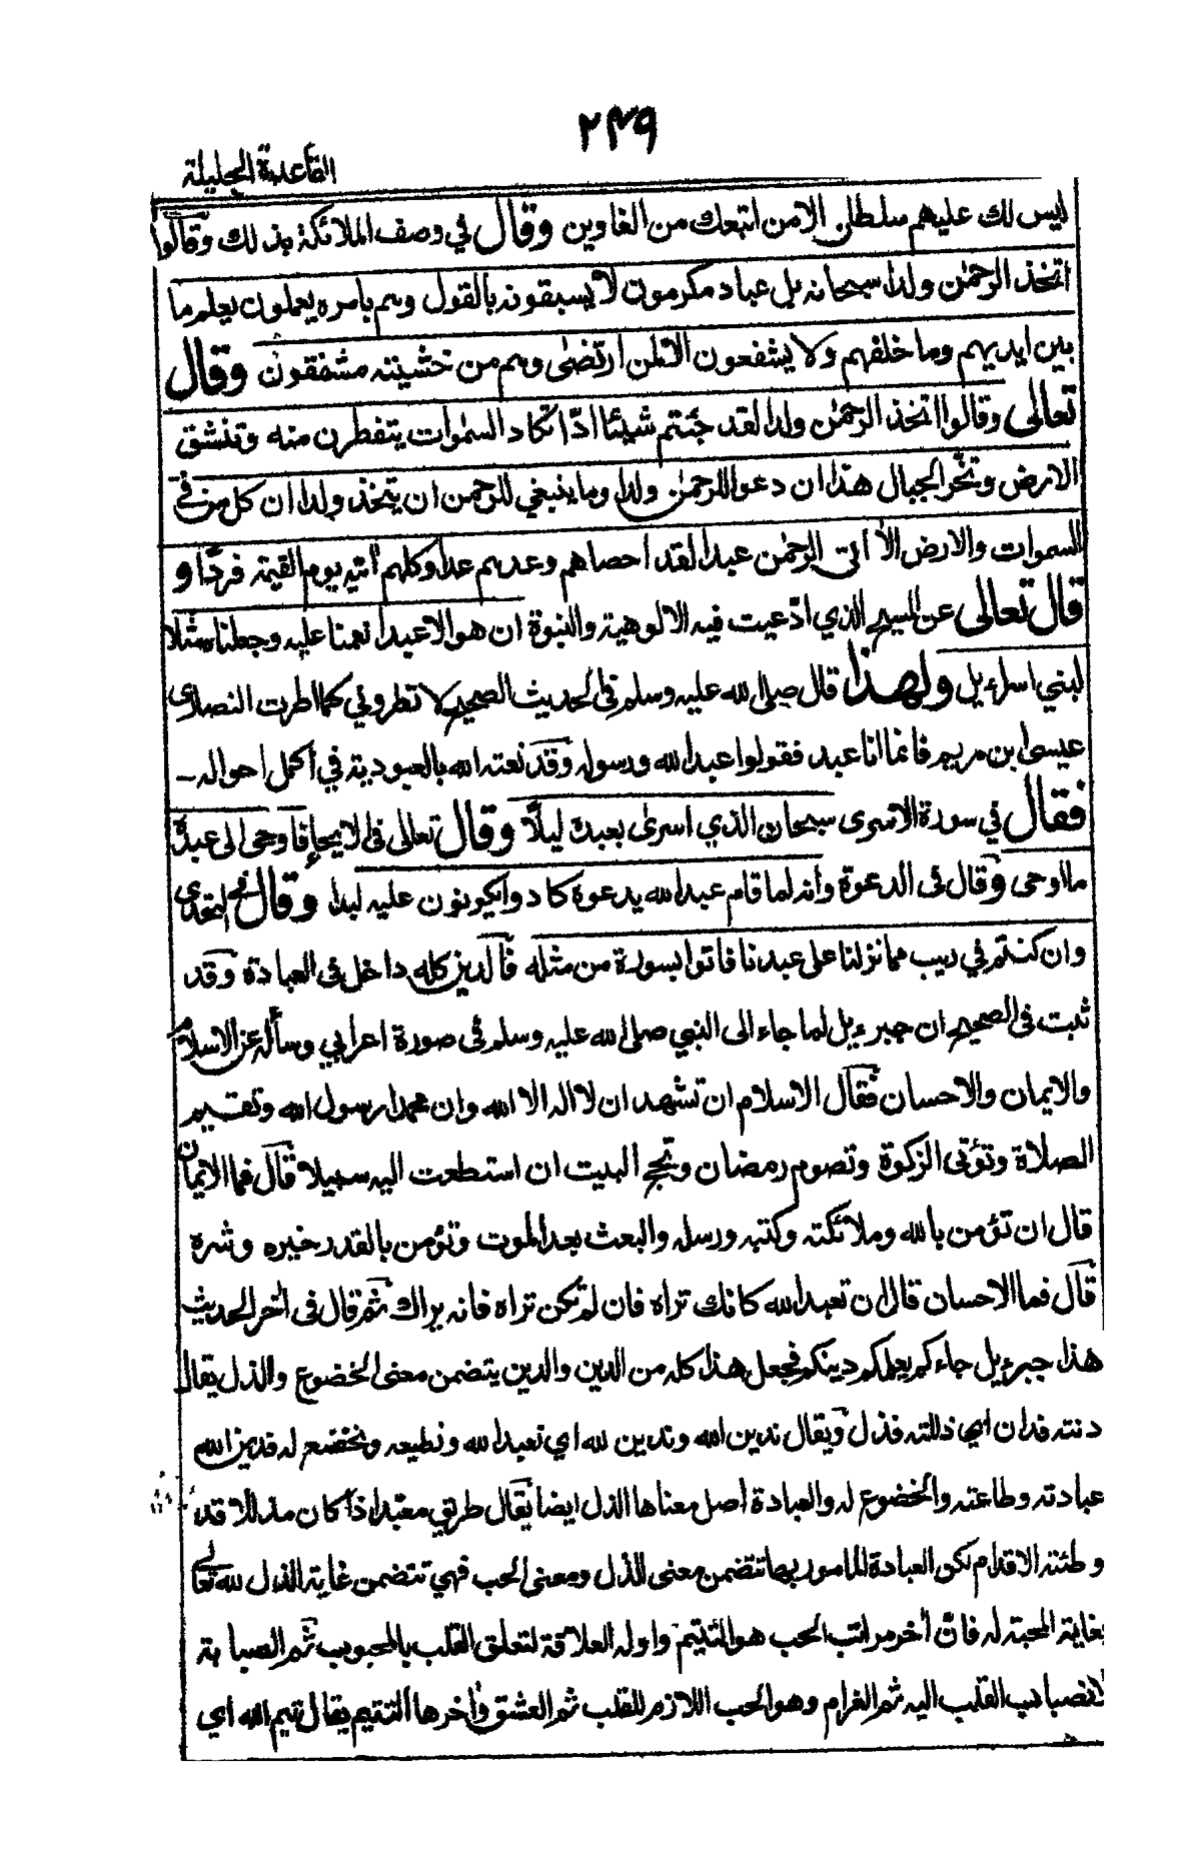 ٢٤٩
القاعدة الجليلة
ليس لك عليهم سلطان الا من اتبعك من الغاوين وقال في وصف الملائكة بذلك وقالوا
اتخذ الرحمٰن ولدا سبحانه بل عباد مكرمون لا يسبقونه بالقول وهم بامره يعملون يعلم ما
بين ايديهم وما خلفهم ولا يشفعون الا لمن ارتضىٰ وهم من خشيته مشفقون وقال
تعالى وقالوا اتخذ الرحمٰن ولدا لقد جئتم شيئا ادّا تكاد السمٰوات يتفطرن منه وتنشق
الارض وتخر الجبال هذا ان دعوا للرحمٰن ولدا وما ينبغي للرحمن ان يتخذ ولدا ان كل من في
السموات والارض الا اٰتى الرحمٰن عبدا لقد احصاهم وعدهم عدا وكلهم اٰتيه يوم القيمة فردًا و
قال تعالى عن المسيح الذي ادّعيت فيه الالوهية والنبوة ان هو الا عبد انعمنا عليه وجعلناه مثلا
لبني اسراءيل ولهذا قال صلى الله عليه وسلم في الحديث الصحيح لا تطروني كما اطرت النصارى
عيسىٰ بن مريم فانما انا عبد فقولوا عبد الله ورسوله وقد نعته الله بالعبودية في أكمل احواله -
فقال في سورة الاسرى سبحان الذي اسرىٰ بعبده ليلًا وقال تعالى فى الايحاء فاوحى الى عبده
ما اوحى وقال فى الدعوة وانه لما قام عبد الله يدعوه كادوا يكونون عليه لبدا وقال في التحدي
وان كنتم في ريب مما نزلنا على عبدنا فاتوا بسورة من مثله فالدين كله داخل فى العبادة وقد
ثبت فى الصحيح ان جبرءيل لما جاء الى النبي صلى الله عليه وسلم فى صورة اعرابي وسأله عن الاسلام
والايمان والاحسان فقال الاسلام ان تشهد ان لا اله الا الله وان محمدا رسول الله وتقيم
الصلاة وتؤتى الزكوة وتصوم رمضان وتحج البيت ان استطعت اليه سبيلا قال فما الايمان
قال ان تؤمن بالله وملائكته وكتبه ورسله والبعث بعد الموت وتؤمن بالقدر خيره وشره
قال فما الاحسان قال ان تعبد الله كانك تراه فان لم تكن تراه فانه يراك ثم قال فى اٰخر الحديث
هذا جبرءيل جاءكم يعلمكم دينكم فجعل هذا كله من الدين والدين يتضمن معنى الخضوع والذل يقال
دنته فدان اي ذللته فذل ويقال ندين الله وندين لله اي نعبد الله ونطيعه ونخضع له فدين الله
عبادته وطاعته والخضوع له والعبادة اصل معناها الذل ايضا يقال طريق معبد اذا كان مذللا قد
وطئته الاقدام لكن العبادة المامور بها تتضمن معنى الذل ومعنى الحب فهي تتضمن غاية الذل لله تعالى
بغاية المحبة له فان اٰخر مراتب الحب هو التتيم واوله العلاقة لتعلق القلب بالمحبوب ثم الصبابة
لانصباب القلب اليه ثم الغرام وهو الحب اللازم للقلب ثم العشق واٰخرها التتيم يقال تيم الله اي